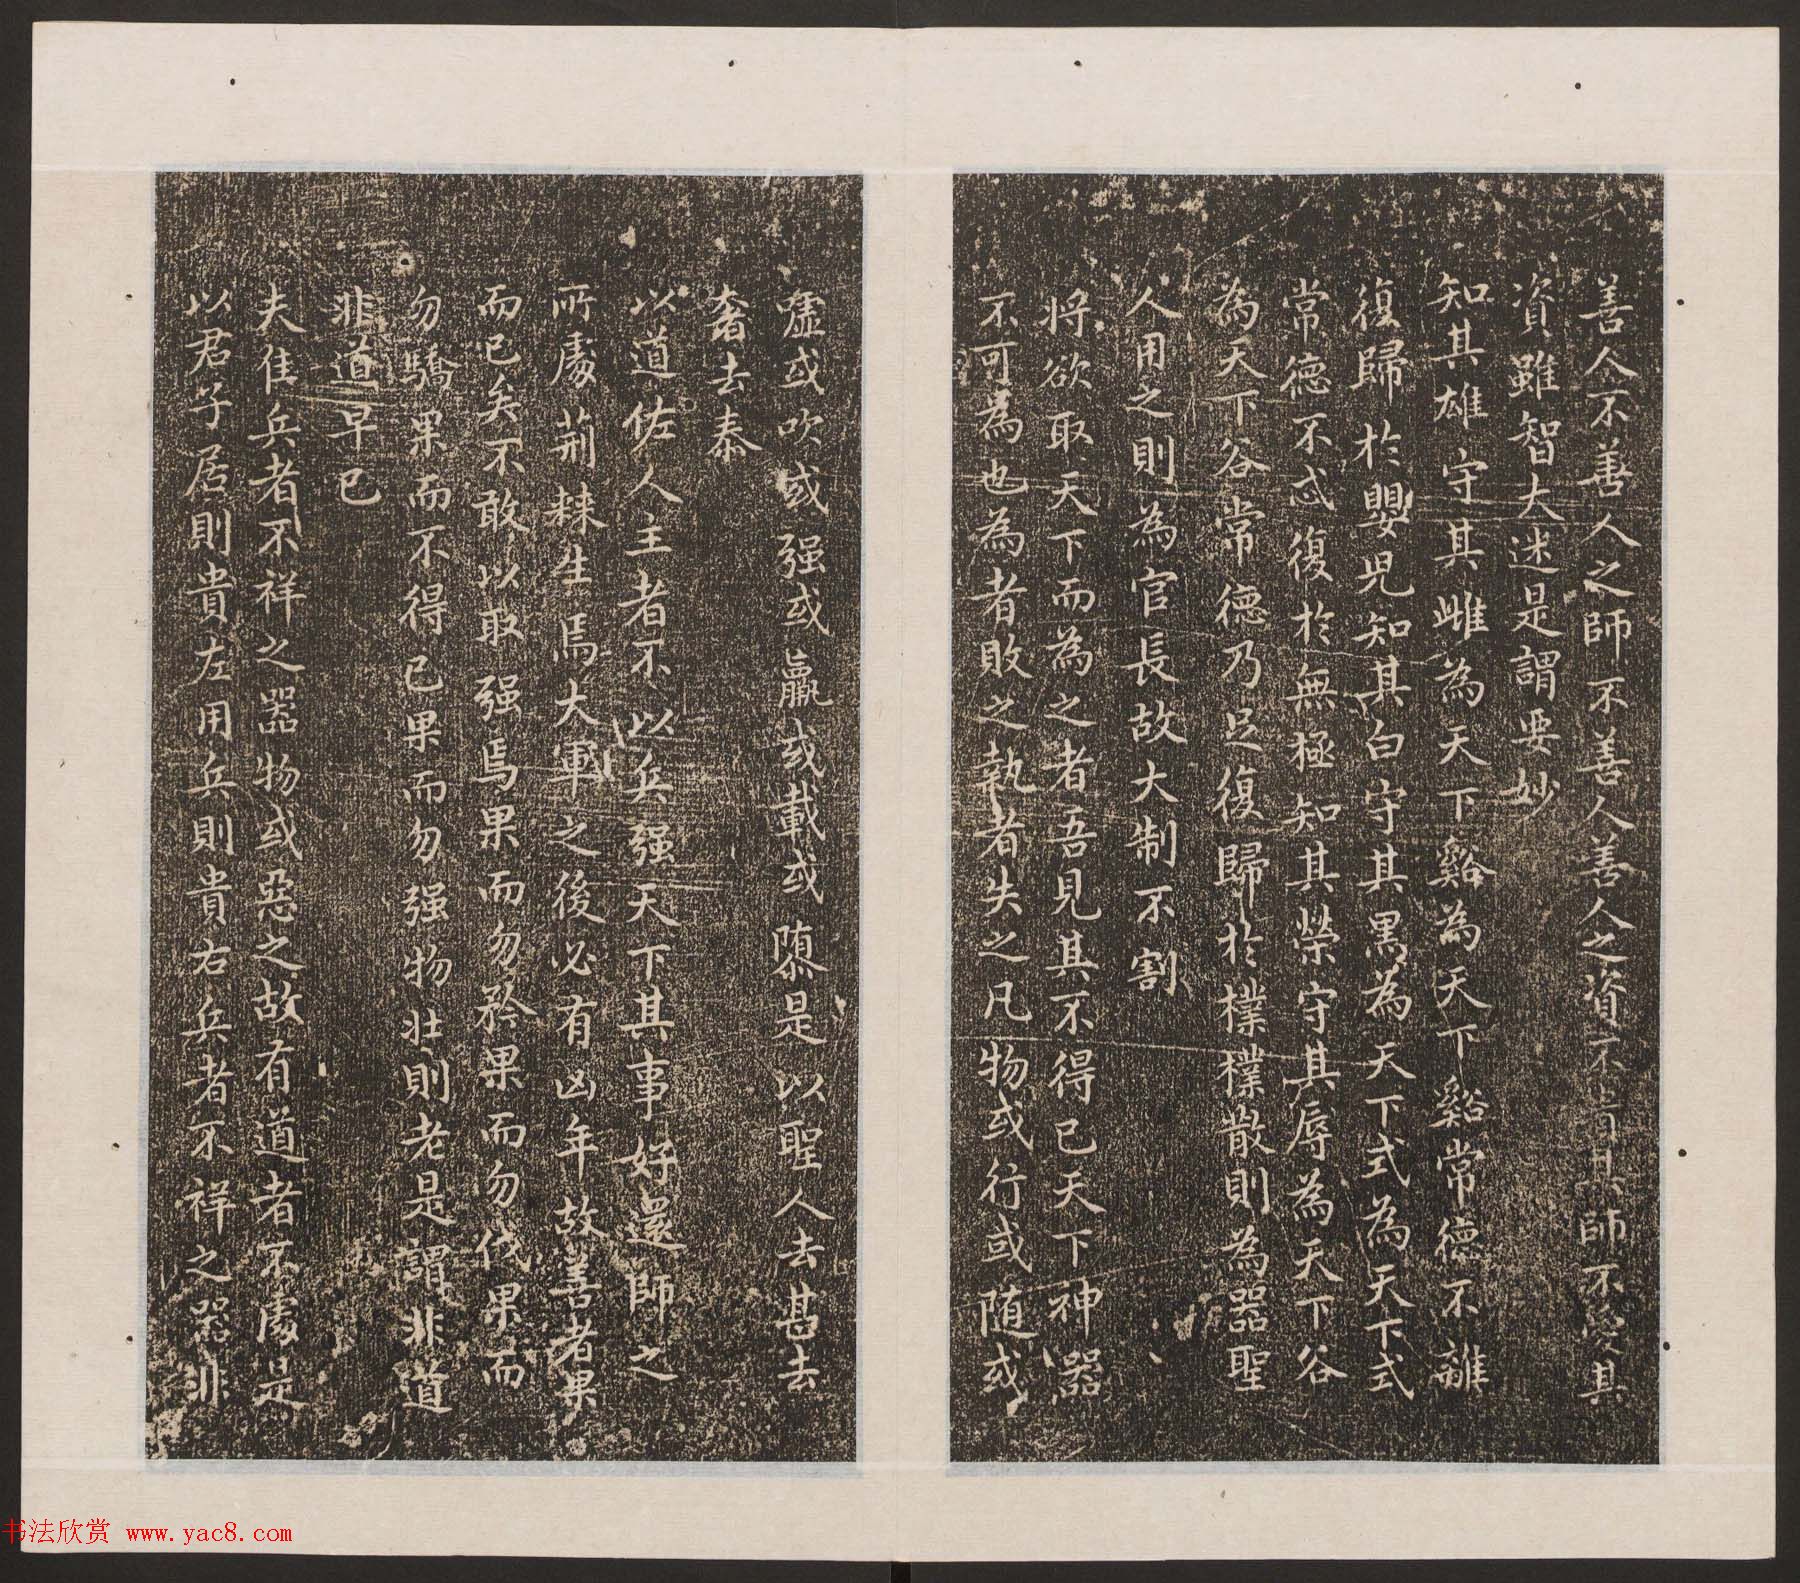 善人不善人之師不善人善人之資不貴其師不愛其
資雖智大迷是謂要妙
知其雄守其雌為天下谿為天下谿常德不離
復歸於嬰兒知其白守其黑為天下式為天下式
常德不忒復於無極知其榮守其辱為天下谷
為天下谷常德乃足復歸於樸樸散則為器聖
人用之則為官長故大制不割
將欲取天下而為之者吾見其不得已天下神器
不可為也為者敗之執者失之凡物或行或隨或
虛或吹或强或羸或載或隳是以聖人去甚去
奢去泰
以道佐人主者不以兵强天下其事好還師之
所處荊棘生焉大軍之後必有凶年故善者果
而已矣不敢以取强焉果而勿矜果而勿伐果而
勿驕果而不得已果而勿强物壯則老是謂非道
非道早已
夫隹兵者不祥之器物或惡之故有道者不處是
以君子居則貴左用兵則貴右兵者不祥之器非
书法欣赏 www.yac8.com